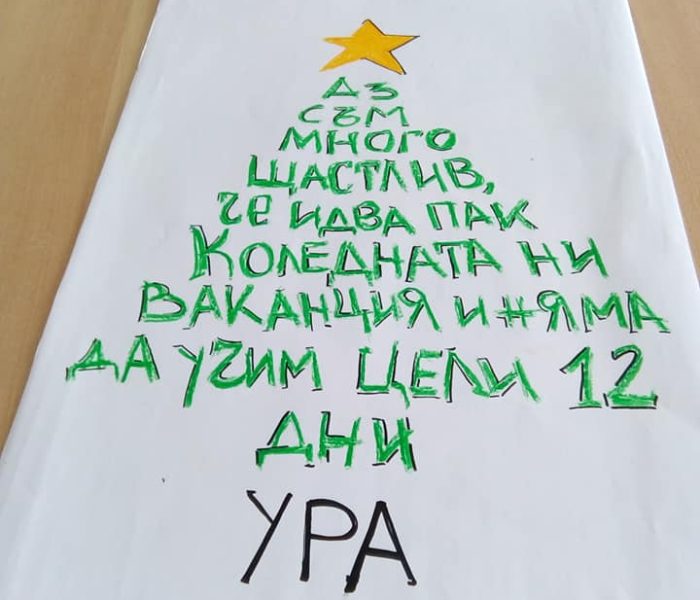 АЗ
СЪМ
МНОГО
ЩАСТЛИВ,
ЧЕ ИДВА ПАК
КОЛЕДНАТА НИ
ВАКАНЦИЯ И НЯМА
ДА УЧИМ ЦЕЛИ 12
ДНИ
УРА